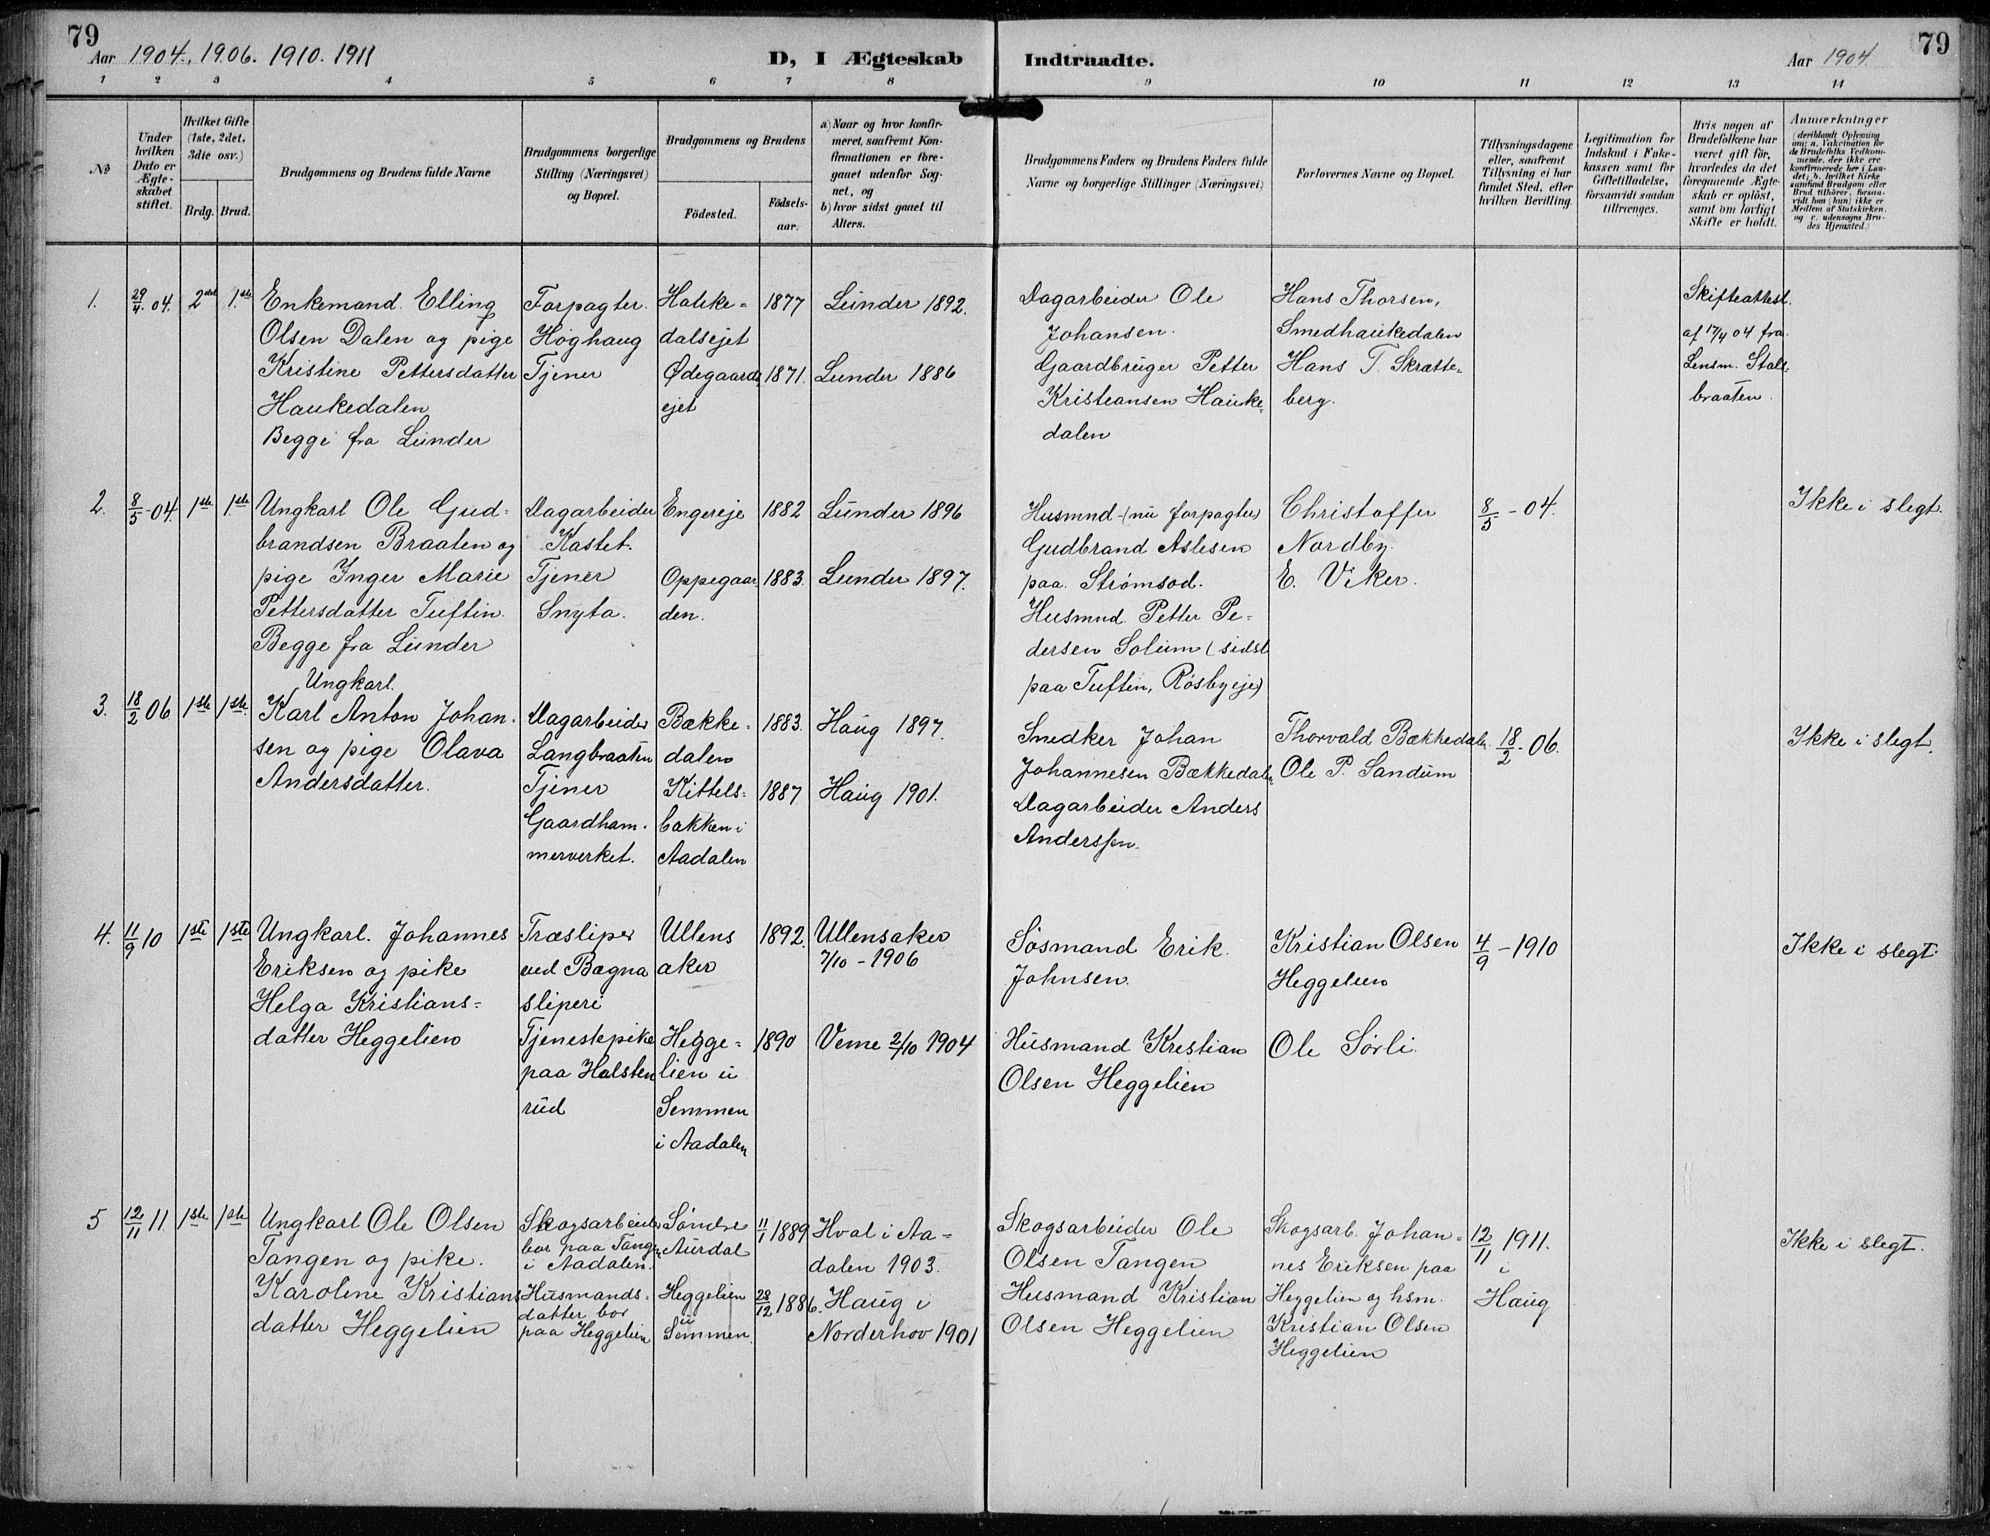 79
Aar 1904, 1906. 1910. 1911
D, I Ægteskab
Indtraadte.
Aar 1904.
79
1 2 3 4 5 6 7 8 9 10 11 12 13 14
No
Under hvilken Dato er Ægteskabet stiftet.
Hvilket Gifte (1ste, 2det, 3die osv.)
Brdg. Brud.
Brudgommens og Brudens fulde Navne
Brudgommens borgerlige Stilling (Næringsvei) og Bopæl.
Brudgommens og Brudens
Födested.
Födselsaar.
a) Naar og hvor konfirmeret, saafremt Konfirmationen er foregaaet udenfor Sognet, og
b) hvor sidst gaaet til Alters.
Brudgommens Faders og Brudens Faders fulde Navne og borgerlige Stillinger (Næringsvei)
Forlovernes Navne og Bopæl.
Tillysningsdagene eller, saafremt Tillysning ei har fundet Sted, efter hvilken Bevilling.
Legitimation for Indskud i Enkekassen samt for Giftetilladelse, forsaavidt saadan tiltrænges.
Hvis nogen af Brudefolkene har været gift för, hvorledes da det foregaaende Ægteskab er oplöst, samt om lovligt Skifte er holdt.
Anmærkninger
(deriblandt Oplysning om: a. Vakcination for de Brudefolks Vedkommende, der ikke ere konfirmerede her i Landet; b. hvilket Kirkesamfund Brudgom eller Brud tilhörer, forsaavidt han (hun) ikke er Medlem af Statskirken, og c. udensogns Brudes Hjemsted.)
1. 29/4 04. 2det 1ste
Enkemand. Elling
Olsen Dalen og pige
Kristine Pettersdatter
Haukedalen
Begge fra Lunder
Forpagter.
Höghaug
Tjener
Hauke-
dalsejet
Ødegaards
ejet
1877
1871.
Lunder 1892.
Lunder 1886
Dagarbeider Ole
Johansen.
Gaardbruger Petter
Kristiansen Hauke-
dalen
Hans Thorsen,
Smedhaukedalen
Hans T. Skratte-
berg.
Skifteattest
af 17/4 04 fra
Lensm. Stals-
braaten.
2. 8/5-04. 1ste 1ste
Ungkarl Ole Gud-
brandsen Braaten og
pige Inger Marie
Pettersdatter Tuftin.
Begge fra Lunder
Dagarbeider
Kastet.
Tjener
Snyta.
Engereje
Oppegaar
den.
1882
1883.
Lunder 1896
Lunder 1897.
Husmnd-(nu forpagter)
Gudbrand Aslesen
paa Strömsod.
Husmnd. Petter Pe-
dersen Solum (sidst
paa Tuftin, Rösbyeje)
Christoffer
Nordby.
E. Viker.
8/5 - 04.
Ikke i slegt.
3. 18/2 06 1ste 1ste.
Ungkarl.
Karl Anton Johan.
sen og pige Olava
Andersdatter.
Dagarbeider
Langbraaten
Tjener
Gaardham.
merverket.
Bække-
dalen
Kittels-
bakken i
Aadalen
1883.
1887.
Haug 1897.
Haug 1901.
Snedker Johan
Johannesen Bækkedalen
Dagarbeider Anders
Anderssen.
Thorvald Bækkedalen
Ole P. Sandum
18/2 - 06.
Ikke i slegt.
4. 11/9 10 1ste 1ste
Ungkarl. Johannes
Eriksen og pike
Helga Kristians-
datter Heggelien
Træsliper
ved Bægna
sliperi
Tjenestepike
paa Halsten
rud
Ullens
aker
Hegge-
lien u
Semmen
i Aadalen
1892.
1890
Ullensaker
7/10 - 1906
Veme 2/10 1904
Sösmand Erik
Johnsen.
Husmand Kristian
Olsen Heggelien
Kristian Olsen
Heggelien
Ole Sörli.
4/9 - 1910
Ikke i slegt.
5 12/11 11. 1ste 1ste
Ungkarl Ole Olsen
Tangen og pike.
Karolene Kristians
datter Heggelien
Skogsarbeider
bor paa Tangen
i Aadalen.
Husmands-
datter bor
paa Heggelien
Søndre
Aurdal
Heggelien
u
Semmen.
11/1 1889
28/12 1886.
Hval i Aa-
dalen 1903.
Haug i
Norderhov 1901
Skogsarbeider Ole
Olsen Tangen
Husmand Kristian
Olsen Heggelien
Skogsarb. Johan-
nes Eriksen paa
Heggelien og hsm.
Kristian Olsen
Heggelien
12/11 1911.
i
Haug
Ikke i slegt.